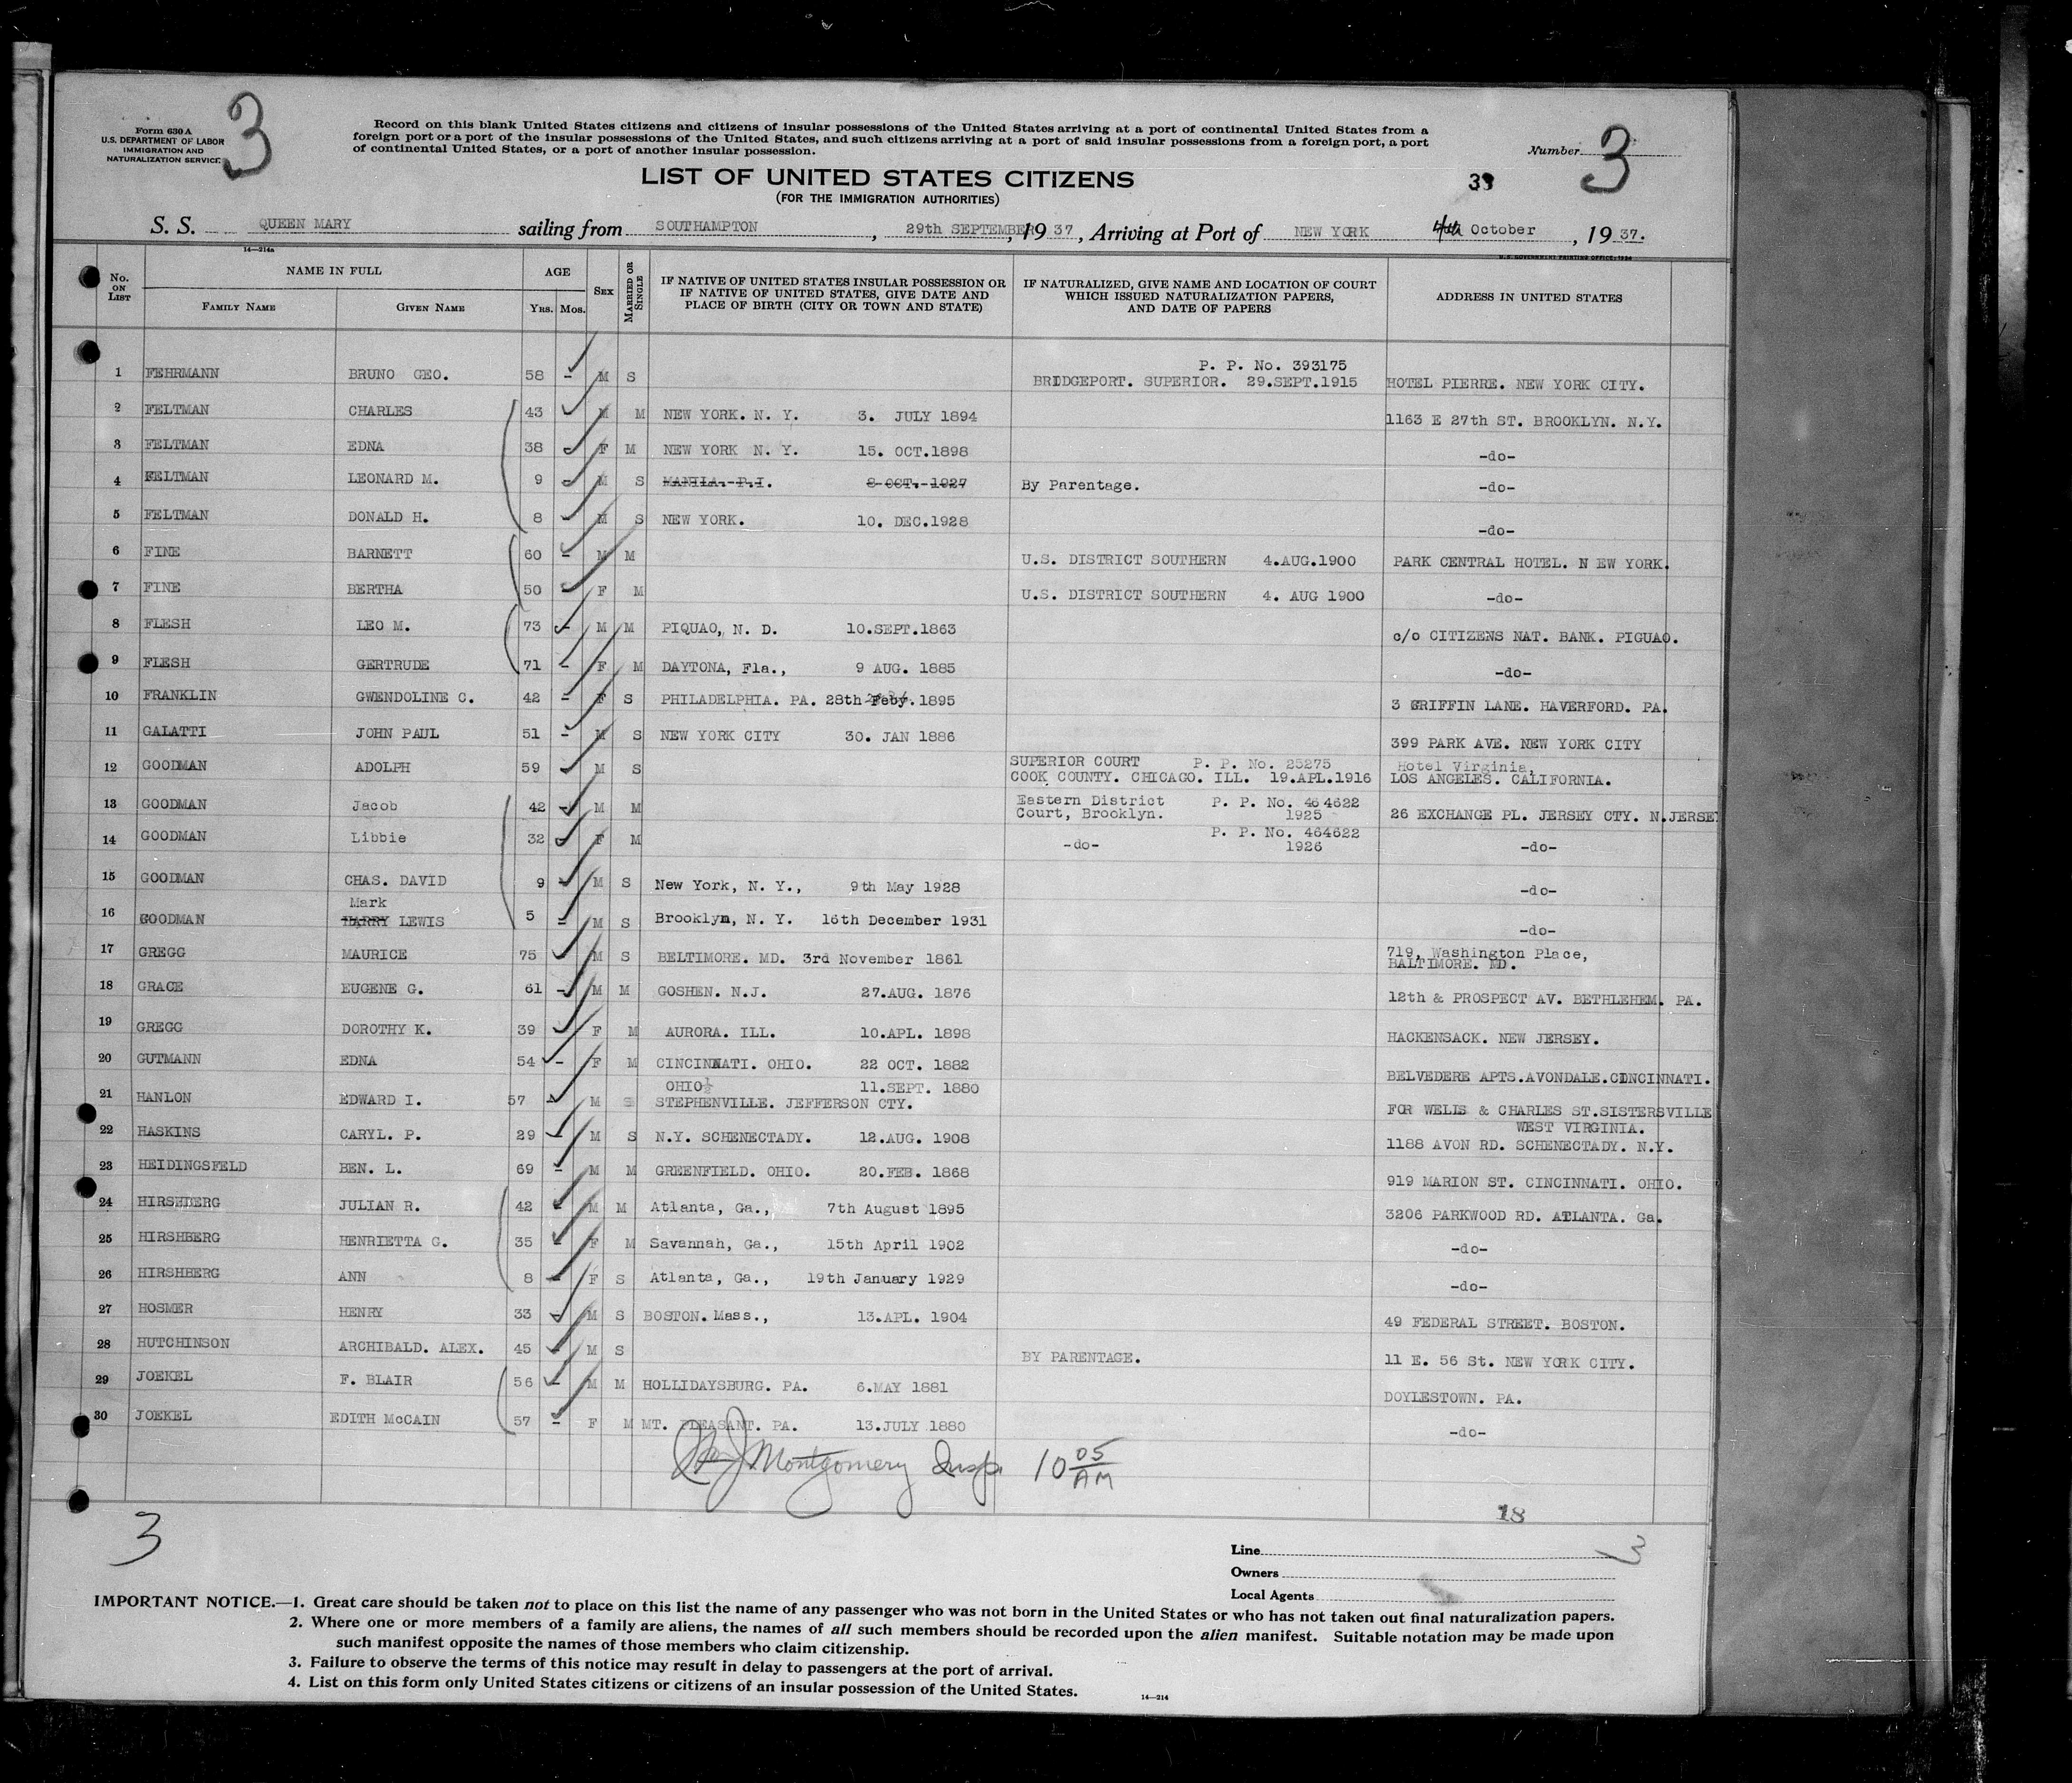 3
Form 630 A
U.S. DEPARTMENT OF LABOR
IMMIGRATION AND
NATURALIZATION SERVICE
Record on this blank United States citizens and citizens of insular possessions of the United States arriving at a port of continental United States from a
foreign port or a port of the insular possessions of the United States, and such citizens arriving at a port of said insular possessions from a foreign port, a port
of continental United States, or a port of another insular possession.
Number 3
LIST OF UNITED STATES CITIZENS
(FOR THE IMMIGRATION AUTHORITIES)
S. S. QUEEN MARY sailing from SOUTHAMPTON, 29th SEPTEMBER, 19 37, Arriving at Port of NEW YORK 4th October, 19 37.
14—214a
U.S. GOVERNMENT PRINTING OFFICE: 1934
No. ON LIST NAME IN FULL AGE SEX MARRIED OR SINGLE IF NATIVE OF UNITED STATES INSULAR POSSESSION OR IF NATIVE OF UNITED STATES, GIVE DATE AND PLACE OF BIRTH (CITY OR TOWN AND STATE) IF NATURALIZED, GIVE NAME AND LOCATION OF COURT WHICH ISSUED NATURALIZATION PAPERS, AND DATE OF PAPERS ADDRESS IN UNITED STATES
FAMILY NAME GIVEN NAME YRS. MOS.
P. P. No. 393175
1 FEHRMANN BRUNO GEO. 58 - M S BRIDGEPORT. SUPERIOR. 29.SEPT.1915 HOTEL PIERRE. NEW YORK CITY.
2 FELTMAN CHARLES 43 M M NEW YORK. N. Y. 3. JULY 1894 1163 E 27th ST. BROOKLYN. N.Y.
3 FELTMAN EDNA 38 F M NEW YORK N. Y. 15. OCT.1898 -do-
4 FELTMAN LEONARD M. 9 M S MANILA. P.I. 8 OCT. 1927 By Parentage. -do-
5 FELTMAN DONALD H. 8 M S NEW YORK. 10. DEC.1928 -do-
6 FINE BARNETT 60 - M M U.S. DISTRICT SOUTHERN 4.AUG.1900 PARK CENTRAL HOTEL. N EW YORK.
7 FINE BERTHA 50 F M U.S. DISTRICT SOUTHERN 4. AUG 1900 -do-
8 FLESH LEO M. 73 - M M PIQUAO, N. D. 10.SEPT.1863 c/o CITIZENS NAT. BANK. PIGUAO.
9 FLESH GERTRUDE 71 - F M DAYTONA, Fla., 9 AUG. 1885 -do-
10 FRANKLIN GWENDOLINE C. 42 - F S PHILADELPHIA. PA. 28th Feby. 1895 3 GRIFFIN LANE. HAVERFORD. PA.
11 GALATTI JOHN PAUL 51 - M S NEW YORK CITY 30. JAN 1886 399 PARK AVE. NEW YORK CITY
SUPERIOR COURT P. P. No. 25275 Hotel Virginia,
12 GOODMAN ADOLPH 59 M S COOK COUNTY. CHICAGO. ILL. 19.APL.1916 LOS ANGELES. CALIFORNIA.
Eastern District P. P. No. 464622
13 GOODMAN Jacob 42 M M Court, Brooklyn. 1925 26 EXCHANGE PL. JERSEY CTY. N.JERSEY
P. P. No. 464622
14 GOODMAN Libbie 32 F M -do- 1926 -do-
15 GOODMAN CHAS. DAVID 9 M S New York, N. Y., 9th May 1928 -do-
Mark
16 GOODMAN HARRY LEWIS 5 - M S Brooklyn, N. Y. 16th December 1931 -do-
17 GREGG MAURICE 75 M S BELTIMORE. MD. 3rd November 1861 719, Washington Place,
BALTIMORE. MD.
18 GRACE EUGENE G. 61 - M M GOSHEN. N.J. 27.AUG. 1876 12th & PROSPECT AV. BETHLEHEM. PA.
19 GREGG DOROTHY K. 39 F M AURORA. ILL. 10.APL. 1898 HACKENSACK. NEW JERSEY.
20 GUTMANN EDNA 54 - F M CINCINNATI. OHIO. 22 OCT. 1882 BELVEDERE APTS.AVONDALE.CINCINNATI.
OHIO 11.SEPT. 1880
21 HANLON EDWARD I. 57 M STEPHENVILLE. JEFFERSON CTY. FOR WELLS & CHARLES ST.SISTERSVILLE
WEST VIRGINIA.
22 HASKINS CARYL. P. 29 - M S N.Y. SCHENECTADY. 12.AUG. 1908 1188 AVON RD. SCHENECTADY. N.Y.
23 HEIDINGSFELD BEN. L. 69 - M M GREENFIELD. OHIO. 20.FEB. 1868 919 MARION ST. CINCINNATI. OHIO.
24 HIRSHBERG JULIAN R. 42 - M M Atlanta, Ga., 7th August 1895 3206 PARKWOOD RD. ATLANTA. Ga.
25 HIRSHBERG HENRIETTA G. 35 - F M Savannah, Ga., 15th April 1902 -do-
26 HIRSHBERG ANN 8 - F S Atlanta, Ga., 19th January 1929 -do-
27 HOSMER HENRY 33 M S BOSTON. Mass., 13.APL. 1904 49 FEDERAL STREET. BOSTON.
28 HUTCHINSON ARCHIBALD. ALEX. 45 - M S BY PARENTAGE. 11 E. 56 St. NEW YORK CITY.
29 JOEKEL F. BLAIR 56 - M M HOLLIDAYSBURG. PA. 6.MAY 1881 DOYLESTOWN. PA.
30 JOEKEL EDITH McCAIN 57 - F M MT. PLEASANT. PA. 13.JULY 1880 -do-
Montgomery Insp. 10 05 AM
18
3
3
Line
Owners
Local Agents
IMPORTANT NOTICE.—1. Great care should be taken not to place on this list the name of any passenger who was not born in the United States or who has not taken out final naturalization papers.
2. Where one or more members of a family are aliens, the names of all such members should be recorded upon the alien manifest. Suitable notation may be made upon
such manifest opposite the names of those members who claim citizenship.
3. Failure to observe the terms of this notice may result in delay to passengers at the port of arrival.
4. List on this form only United States citizens or citizens of an insular possession of the United States.
14—214